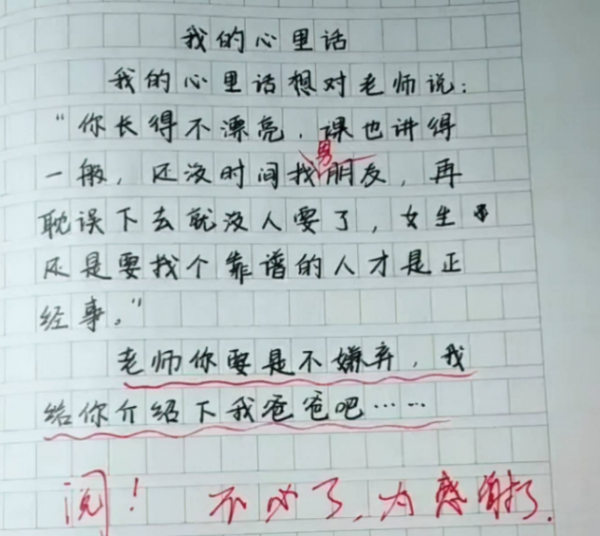 我的心里话
我的心里话想对老师说:
“你长得不漂亮,课也讲得
男
一般,还没时间找朋友,再
耽误下去就没人要了,女生
还是要找个靠谱的人才是正
经事。”
老师你要是不嫌弃,我
给你介绍下我爸爸吧……
阅! 不必了,为